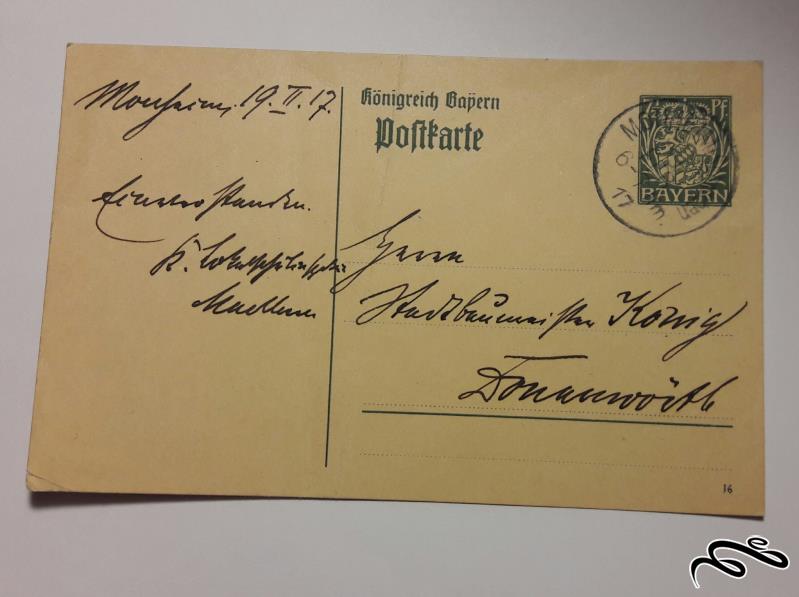 Monheim, 19. II. 17.
Einverstanden.
K. Lokalschulinspektion
Königreich Bayern
Postkarte
7½ Pf
BAYERN
17
Herrn
Stadtbaumeister König
Donauwörth
16